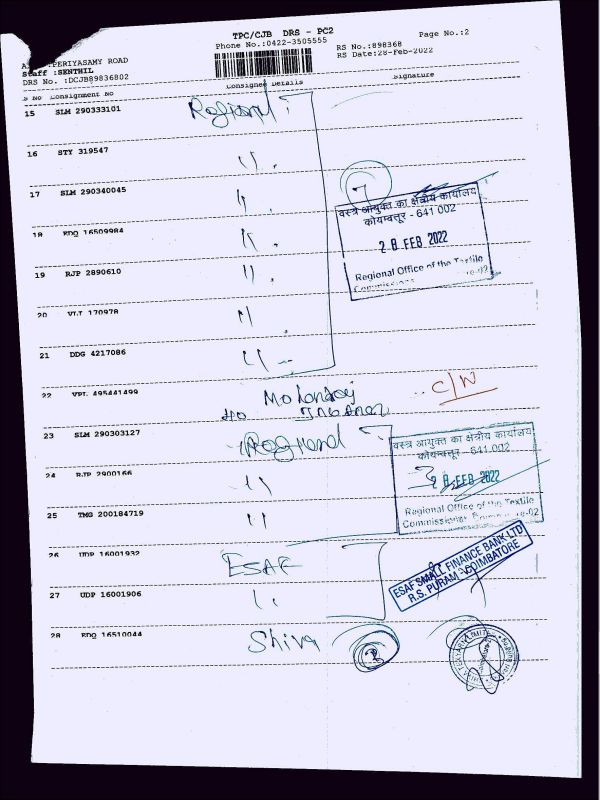 TPC/CJB DRS - PC2
Page No.:2
Phone No.:0422-3505555
RS No.:898368
RS Date:28-Feb-2022
PERIYASAMY ROAD
Staff :SENTHIL
DRS No. :DCJB89836802
S No Consignment No Consignee Details Signature
15 SLM 290333101 Regional
16 STY 319547 "
17 SLM 290340045 "
18 EDQ 16509984 "
19 RJP 2890610 "
20 VLT 170978 "
21 DDG 4217086 "
वस्त्र आयुक्त का क्षेत्रीय कार्यालय
कोयम्बत्तूर - 641 002
28 FEB 2022
Regional Office of the Textile
22 VPL 495441499
C/W
23 SLM 290303127 Regional
24 RJP 2900166 "
25 TMG 200184719 "
वस्त्र आयुक्त का क्षेत्रीय कार्यालय
कोयम्बत्तूर - 641 002
28 FEB 2022
Regional Office of the Textile
Commissioner
26 UDP 16001932 ESAF
27 UDP 16001906 "
ESAF SMALL FINANCE BANK LTD
R.S. PURAM COIMBATORE
28 EDQ 16510044 Shiva